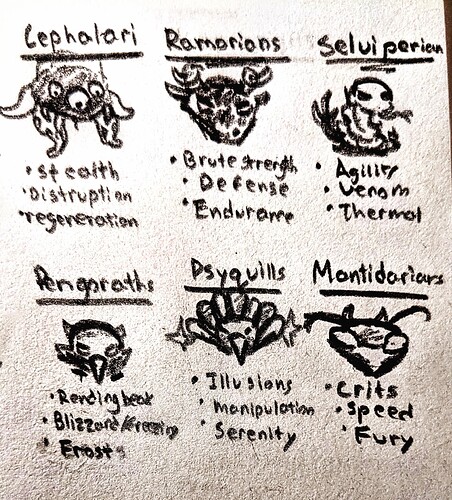 Cephalari
• Stealth
• Distruption
• regeneration
Ramorians
• Brute strength
• Defense
• Endurame
Selviperian
• Agility
• Venom
• Thermal
Pengoraths
• Rending beak
• Blizzard/freezing
• Frost
Psyquills
• Illusions
• manipulation
• Serenity
Mantidarians
• Crits
• Speed
• Fury